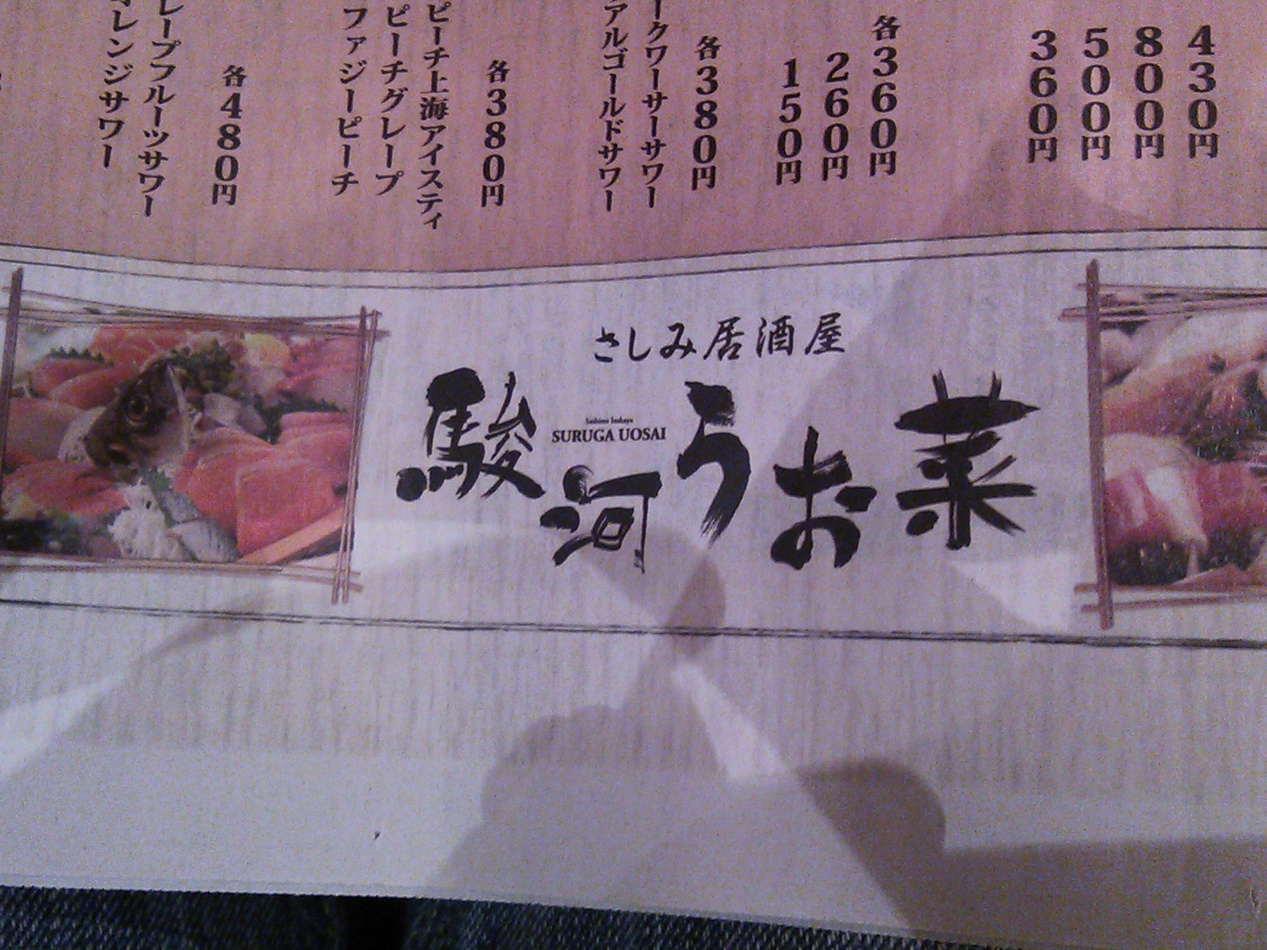 430円
800円
500円
360円
各360円
260円
150円
各380円
ークワーサーサワー
アルゴールドサワー
各380円
ピーチ上海アイスティ
ピーチグレープ
ファジーピーチ
各480円
レープフルーツサワー
レンジサワー
さしみ居酒屋
駿河うお菜
Sashimi Izakaya
SURUGA UOSAI